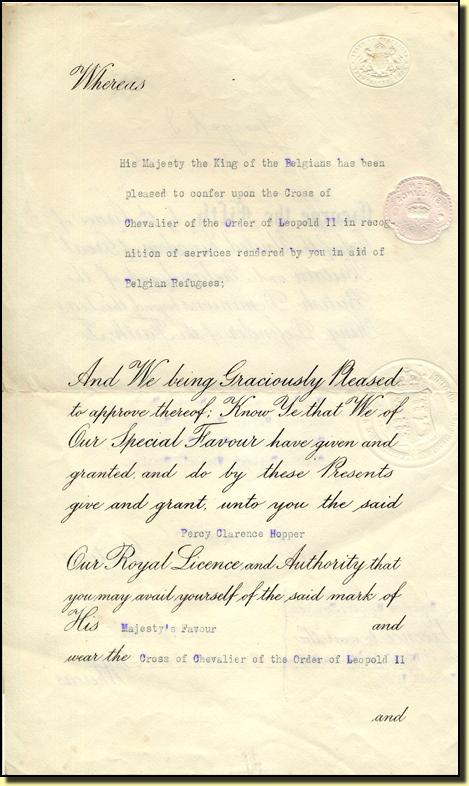 Whereas
His Majesty the King of the Belgians has been
pleased to confer upon the Cross of
Chevalier of the Order of Leopold II in recog
nition of services rendered by you in aid of
Belgian Refugees;
And We being Graciously Pleased
to approve thereof; Know Ye that We of
Our Special Favour have given and
granted, and do by these Presents
give and grant, unto you the said
Percy Clarence Hopper
Our Royal Licence and Authority that
you may avail yourself of the said mark of
His Majesty's Favour and
wear the Cross of Chevalier of the Order of Leopold II
and